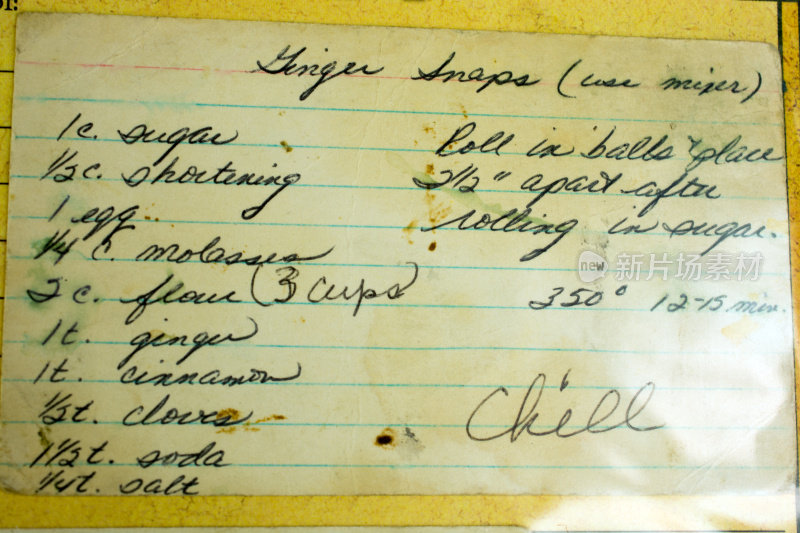 Ginger Snaps (use mixer)
1 c. sugar
1/2 c. shortening
1 egg
1/4 c. molasses
2 c. flour (3 cups)
1 t. ginger
1 t. cinnamon
1/2 t. cloves
1 1/2 t. soda
1/4 t. salt
Roll in balls & place
2 1/2" apart after
rolling in sugar.
350° 12-15 min.
Chill
new 新图片素材网